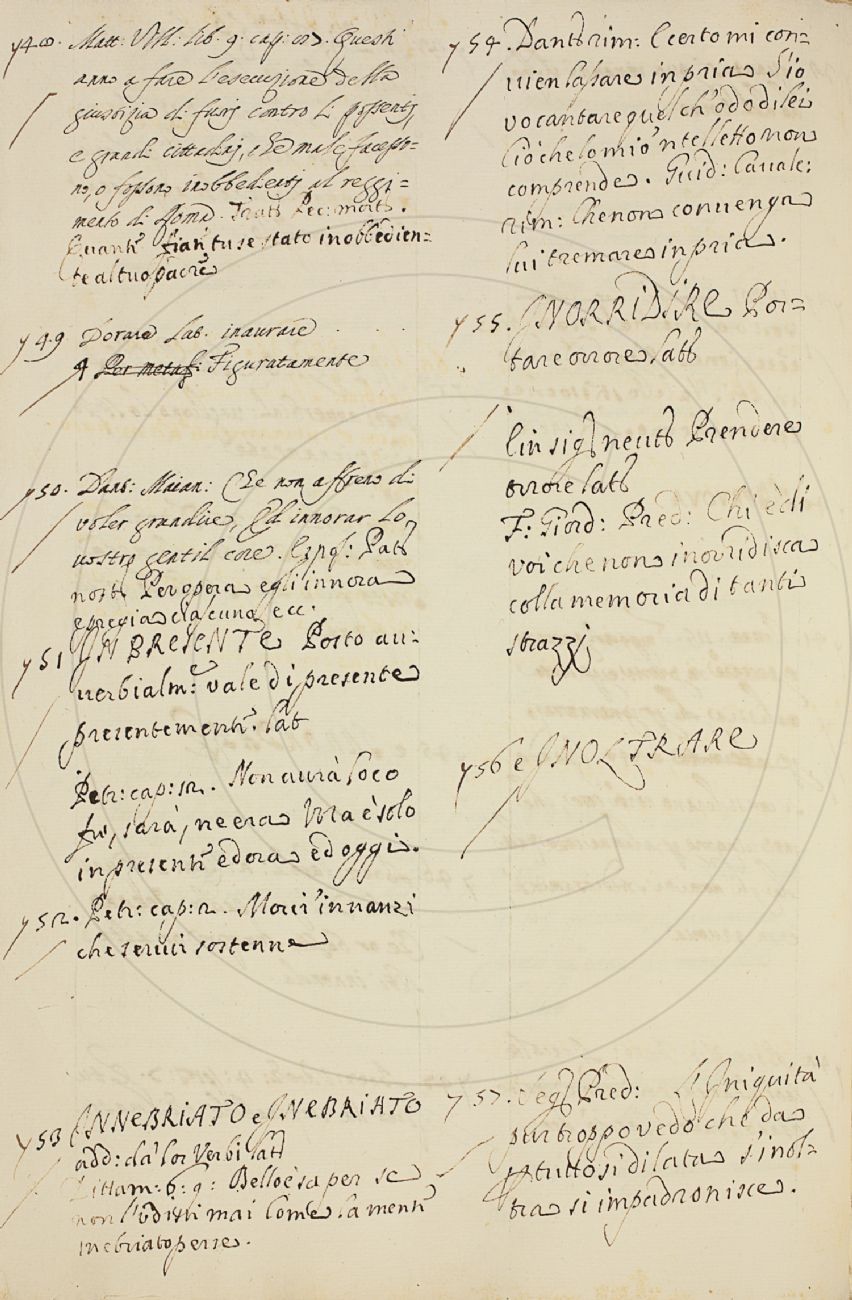 748. Matt: Vill: lib. 9. cap: 87. Questi
anno a fare l'esecuzione della
giustizia di fuori contro li possenti,
e grandi cittadini, che male facesso=
no, o fossono inobbedienti al reggi=
mento di Roma. Tratt: Pec: mort:.
Quanti fian tu se stato inobbedien=
te al tuo padre
749 Dorare Lat. inaurare
¶ Per metaf: Figuratamente
750. Dant: Maian: Che non affreno di
voler grandire, Ed innorar lo
vostro gentil core. Espos: Patr
nostr Per opera egli innora
e fregia ciascuna, ecc.
751 IN PRESENTE Posto au=
uerbialm: vale di presente
presentement: Lat
Petr: cap: 12. Non aurà loco
fu, sarà, ne era Ma è solo
in present ed ora ed oggi.
752. Petr: cap: 2. Morir innanzi
che seruir sostenne
753 INNEBRIATO e INEBRIATO
add: da' lor Verbi Lat
Bello è saper se
non l'udisti mai Come la mente
inebriato perse.
754. Dant rim: E certo mi con=
uien lassare in pria S'io
vo cantar quel ch'odo di lei
Ciò che lo mio 'ntelletto non
comprende. Guid: Caualc:
rim: Che non conuenga
lui tremare in pria.
755. INORRIDIRE Por=
tare orrore Latt
E in sig neut Prendere
orrore Latt
F: Giord: Pred: Chi è di
voi che non inorridisca
colla memoria di tanti
strazzj
756 e INOLTRARE
757. Segn Pred: L'Iniquità
pur troppo vedo che da
p tutto si dilata s'inol=
tra si impadronisce.